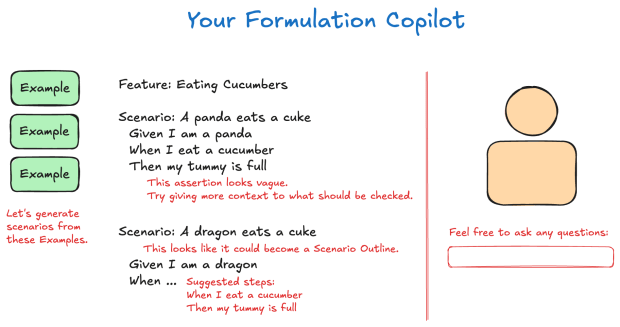 Your Formulation Copilot
Example
Example
Example
Let's generate
scenarios from
these Examples.
Feature: Eating Cucumbers
Scenario: A panda eats a cuke
Given I am a panda
When I eat a cucumber
Then my tummy is full
This assertion looks vague.
Try giving more context to what should be checked.
Scenario: A dragon eats a cuke
This looks like it could become a Scenario Outline.
Given I am a dragon
When ...
Suggested steps:
When I eat a cucumber
Then my tummy is full
Feel free to ask any questions: